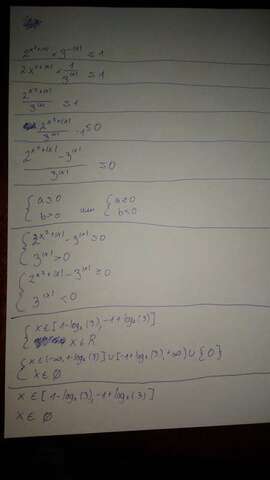 2^(x²+|x|) · 3^(-|x|) ≤ 1
2^(x²+|x|) · 1/3^|x| ≤ 1
2^(x²+|x|)/3^|x| ≤ 1
2^(x²+|x|)/3^|x| - 1 ≤ 0
(2^(x²+|x|) - 3^|x|)/3^|x| ≤ 0
{ a ≤ 0 или { a ≥ 0
{ b > 0 { b < 0
{ 2^(x²+|x|) - 3^|x| ≤ 0
{ 3^|x| > 0
{ 2^(x²+|x|) - 3^|x| ≥ 0
{ 3^|x| < 0
{ x ∈ [1 - log₂(3), -1 + log₂(3)]
{ x ∈ R
{ x ∈ (-∞, 1 - log₂(3)] ∪ [-1 + log₂(3), +∞) ∪ {0}
{ x ∈ ∅
x ∈ [1 - log₂(3), -1 + log₂(3)]
x ∈ ∅